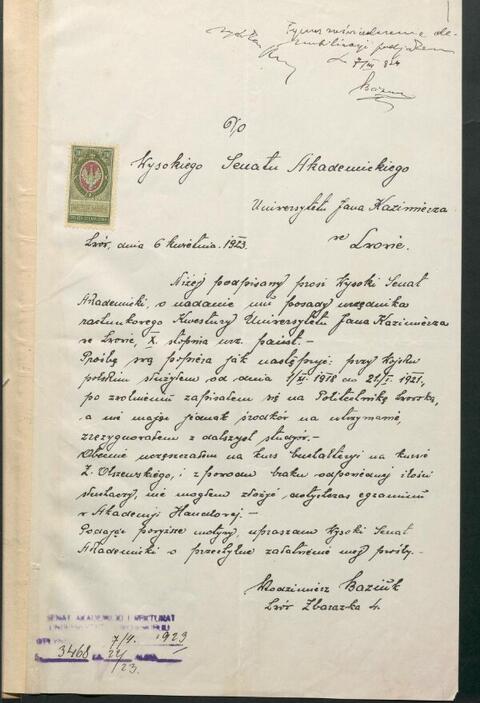 Tymcz. zaświadczenie de-
mobilizacji podjąłem
7/III 824
Baziuk
Do
Wysokiego Senatu Akademickiego
Uniwersytetu Jana Kazimierza
we
Lwowie.
Lwów, dnia 6 kwietnia 1923.
Niżej podpisany prosi Wysoki Senat
Akademicki, o nadanie mu posady urzędnika
rachunkowego Kwestury Uniwersytetu Jana Kazimierza
we Lwowie, X. stopnia urz. państ. —
Prośbę swą popiera jak następuje: przy Wojsku
polskiem służyłem od dnia 1/XI 1918 do 21/I. 1921,
po zwolnieniu zapisałem się na Politechnikę Lwowską,
a nie mając jednak środków na utrzymanie,
zrezygnowałem z dalszych studjów. —
Obecnie uczęszczałem na kurs buchalteryi na kursie
Z. Olszewskiego, i z powodu braku odpowiedniej ilości
słuchaczy, nie mogłem złożyć dotychczas egzaminu
w Akademji Handlowej. —
Podając powyższe motywy, upraszam Wysoki Senat
Akademicki o przychylne załatwienie mej prośby. —
Włodzimierz Baziuk
Lwów Zbarazka 4.
SENAT AKADEMICKI I REKTORAT
7/4. 1923
3468
23.